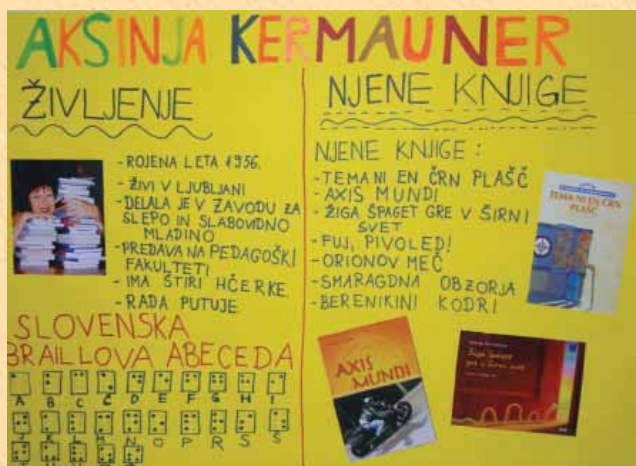 AKSINJA KERMAUNER
ŽIVLJENJE
- ROJENA LETA 1956.
- ŽIVI V LJUBLJANI
- DELALA JE V ZAVODU ZA
SLEPO IN SLABOVIDNO
MLADINO
- PREDAVA NA PEDAGOŠKI
FAKULTETI
- IMA ŠTIRI HČERKE
- RADA PUTUJE
SLOVENSKA
BRAILLOVA ABECEDA
A B C Č D E F G H I
J K L M N O P R S Š
NJENE KNJIGE
NJENE KNJIGE :
- TEMA NI EN ČRN PLAŠČ
- AXIS MUNDI
- ŽIGA ŠPAGET GRE V ŠIRNI
SVET
- FUJ, PIVOLED!
- ORIONOV MEČ
- SMARAGDNA OBZORJA
- BERENIKINI KODRI
TEMA NI EN ČRN
PLAŠČ
AXIS
MUNDI
Žiga špaget
gre v širni svet